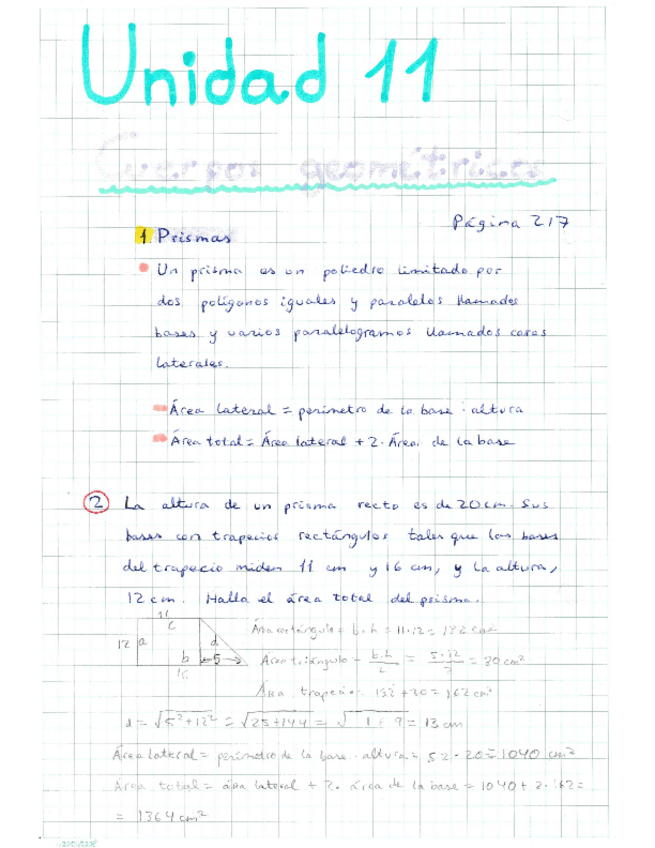 Unidad 11
Cuerpos geométricos
Página 217
1 Prismas
Un prisma es un poliedro limitado por
dos polígonos iguales y paralelos llamados
bases y varios paralelogramos llamados caras
laterales.
Área lateral = perímetro de la base · altura
Área total = Área lateral + 2 · Área de la base
2 La altura de un prisma recto es de 20 cm. Sus
bases son trapecios rectángulos tales que las bases
del trapecio miden 11 cm y 16 cm, y la altura,
12 cm. Halla el área total del prisma.
11
c
12 a d
b 5
16
Área rectángulo = b · h = 11 · 12 = 132 cm²
Área triángulo = b·h/2 = 5·12/2 = 30 cm²
Área trapecio = 132 + 30 = 162 cm²
d = √5² + 12² = √25 + 144 = √169 = 13 cm
Área lateral = perímetro de la base · altura = 52 · 20 = 1040 cm²
Área total = área lateral + 2 · área de la base = 1040 + 2 · 162 =
= 1364 cm²